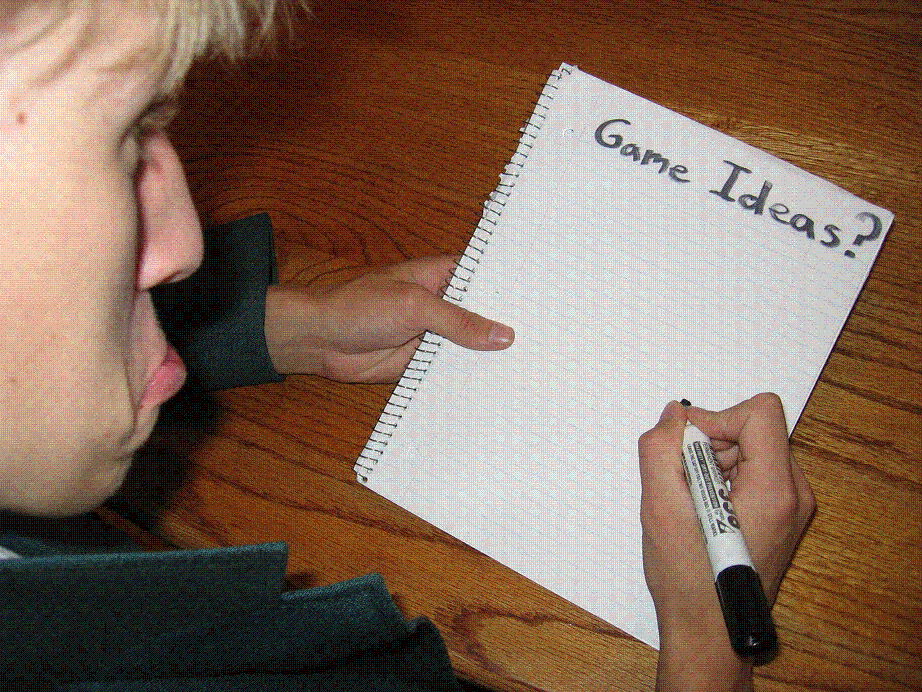 Game Ideas?